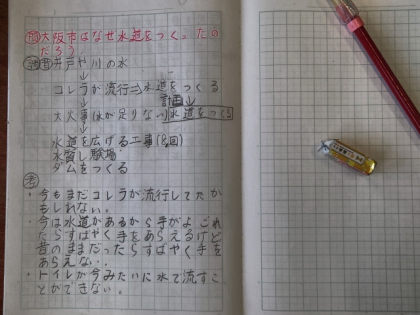 問大阪市はなぜ水道をつくったの
だろう
調昔井戸や川の水
↓
コレラが流行⇒水道をつくる
↓ 計画↓
大火事(水が足りない)水道をつくる
↓
水道を広げる工事(8回)
水質し験場
ダムをつくる
考
・今もまだコレラが流行してたか
もしれない。
・今は水道があるから手がよごれ
たらすばやく手をあらえるけど
昔のままだったらすばやく手を
あらえない。
・トイレが今みたいに水で流すこ
とができない。